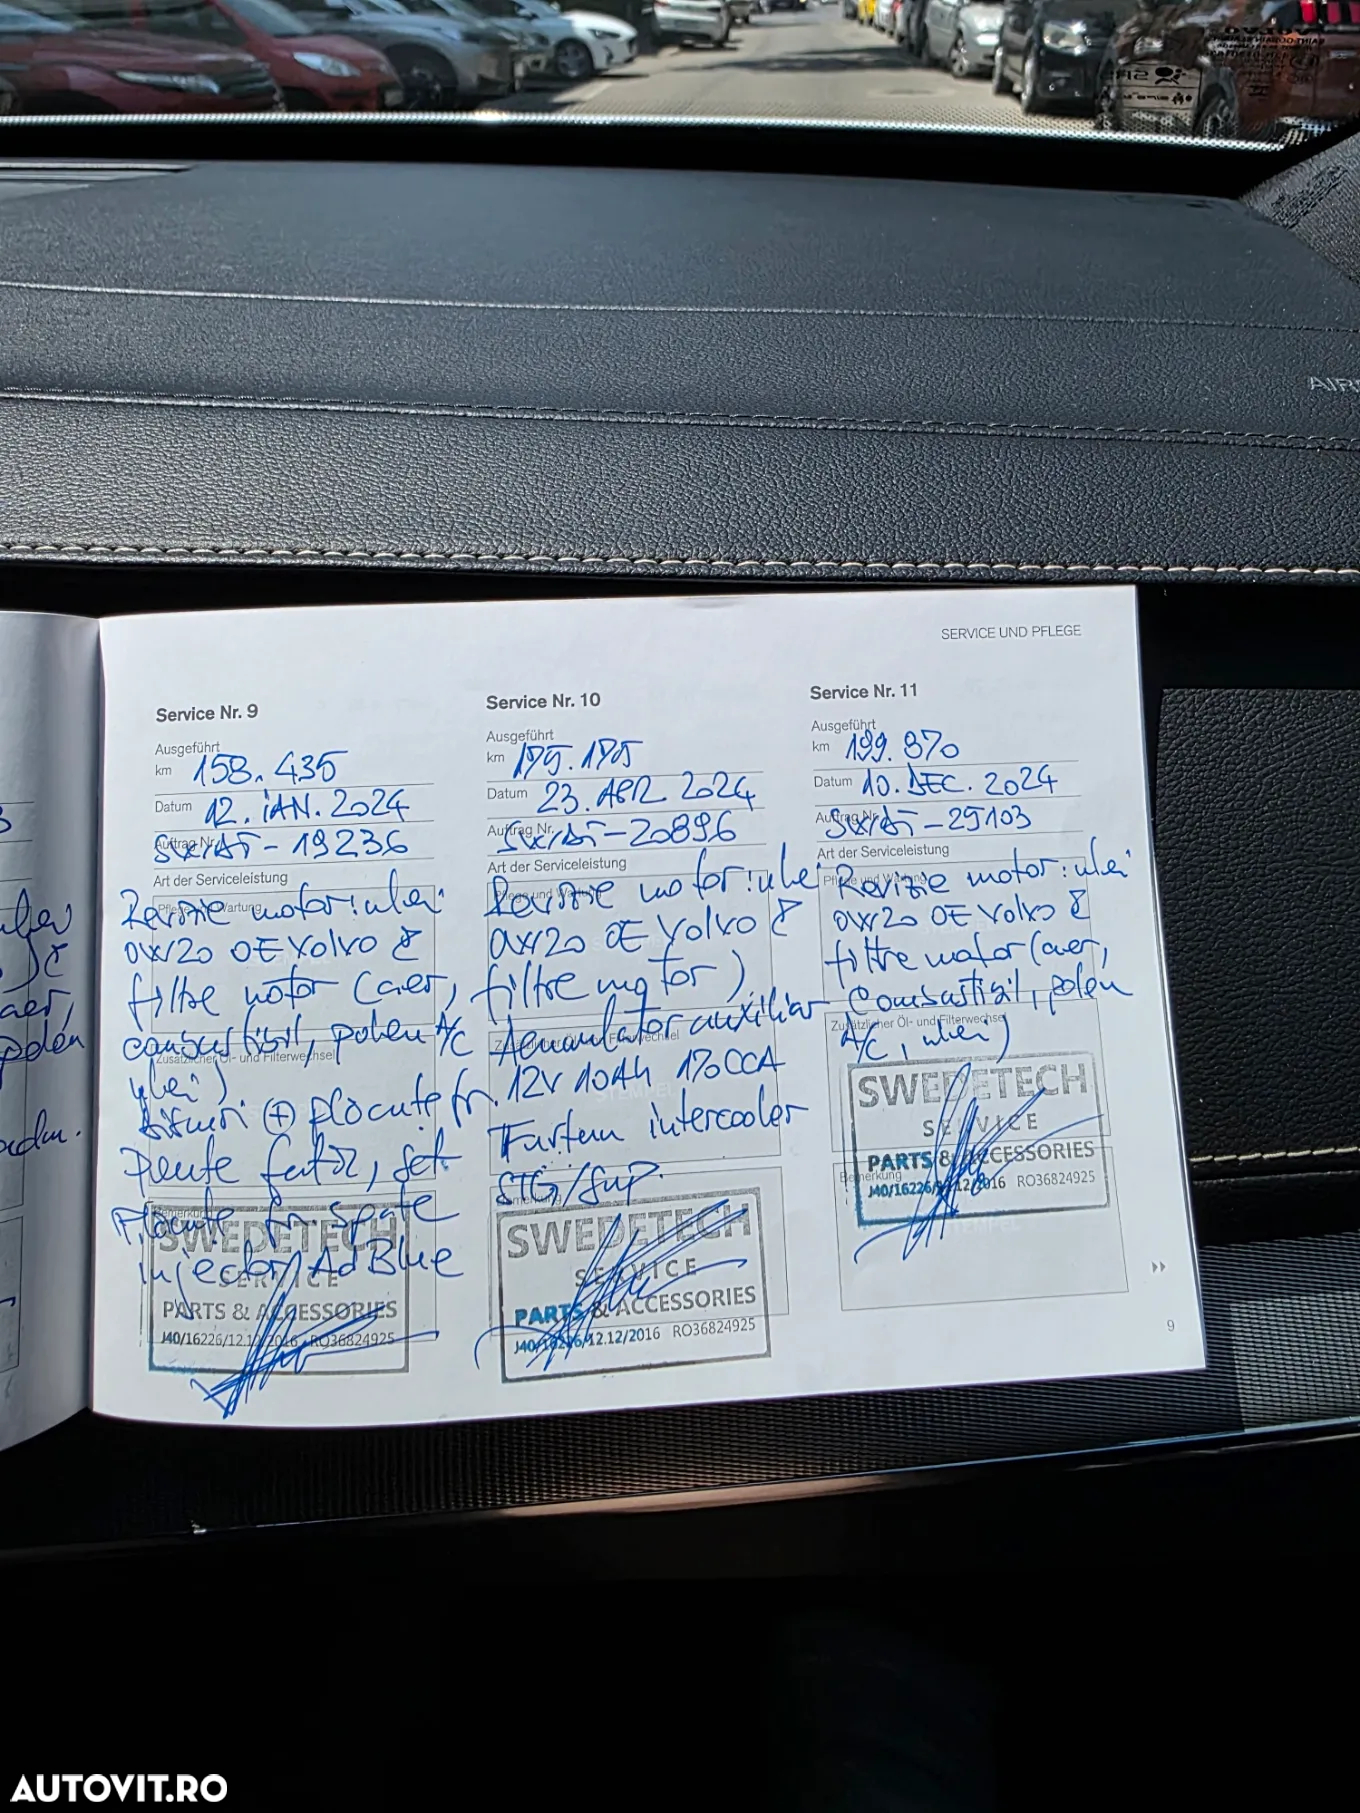 AIRB
SERVICE UND PFLEGE
Service Nr. 9
Ausgeführt
km 158.435
Datum 12. IAN. 2024
Auftrag Nr. - 19236
Art der Serviceleistung
Pflege und Wartung
Revizie motor: ulei
0W20 OE Volvo &
filtre motor (aer,
combustibil, polen A/C
Zusätzlicher Öl- und Filterwechsel
ulei)
+ plăcuțe fr.
fată, set
Plăcuțe fr. spate
Bemerkung
injector AdBlue
SWEDETECH
SERVICE
PARTS & ACCESSORIES
J40/16226/12.12/2016 RO36824925
Service Nr. 10
Ausgeführt
km 175.175
Datum 23. APR. 2024
Auftrag Nr. - 20896
Art der Serviceleistung
Pflege und Wartung
Revizie motor: ulei
0W20 OE Volvo &
filtre motor)
Acumulator auxiliar
12V 10Ah 170CCA
Furtun intercooler
STG/Sup.
Bemerkung
SWEDETECH
SERVICE
PARTS & ACCESSORIES
J40/16226/12.12/2016 RO36824925
Service Nr. 11
Ausgeführt
km 199.870
Datum 10. DEC. 2024
Auftrag Nr. - 25103
Art der Serviceleistung
Pflege und Wartung
Revizie motor: ulei
0W20 OE Volvo &
filtre motor (aer,
combustibil, polen
Zusätzlicher Öl- und Filterwechsel
A/C, ulei)
SWEDETECH
SERVICE
PARTS & ACCESSORIES
J40/16226/12.12/2016 RO36824925
Bemerkung
STEMPEL
9
AUTOVIT.RO